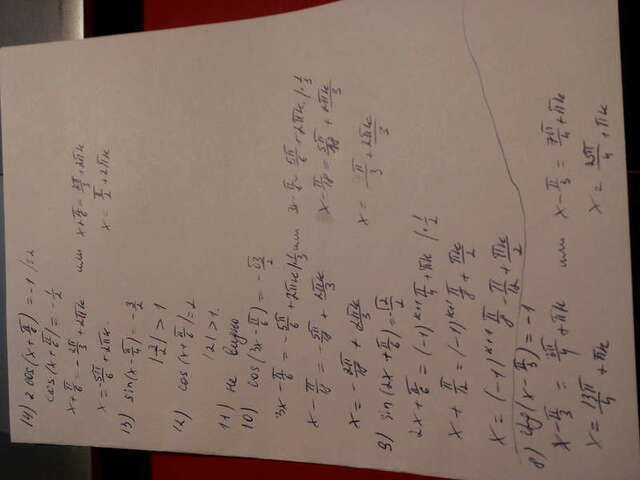 14) 2cos(x+π/6)=-1 |:2
cos(x+π/6)=-1/2
x+π/6=-2π/3+2πk или x+π/6=2π/3+2πk
x=-5π/6+2πk. x=π/2+2πk
13) sin(x-π/4)=-3/2
|-3/2|>1
12) cos(x+π/6)=2
|2|>1.
11) не видно
10) cos(3x-π/6)=-√3/2
3x-π/6=-5π/6+2πk|·1/3 или 3x-π/6=5π/6+2πk|·1/3
x-π/18=-5π/18+2πk/3 x-π/18=5π/18+2πk/3
x=-2π/9+2πk/3 x=π/3+2πk/3
9) sin(2x+π/6)=-√2/2
2x+π/6=(-1)^k+1 π/4+πk |·1/2
x+π/12=(-1)^k+1 π/8+πk/2
x=(-1)^k+1 π/8-π/12+πk/2
8) ctg(x-π/3)=-1
x-π/3=3π/4+πk или x-π/3=7π/4+πk
x=13π/+πk x=25π/+πk